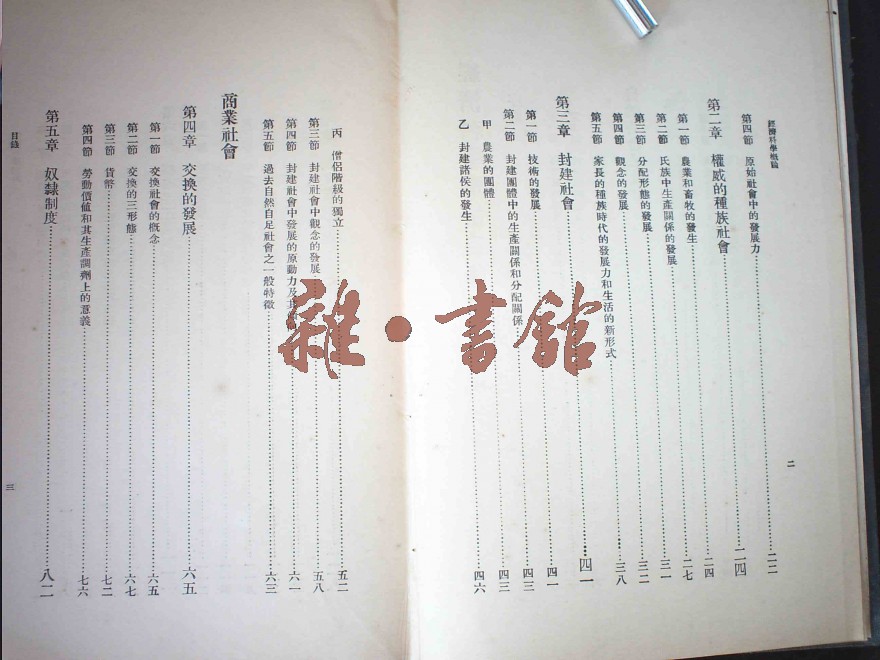 經濟科學概論
第四節 原始社會中的發展力 二二
第二章 權威的種族社會 二四
第一節 農業和畜牧的發生 二四
第二節 氏族中生產關係的發展 二七
第三節 分配形態的發展 三一
第四節 觀念的發展 三二
第五節 家長的種族時代的發展力和生活的新形式 三八
第三章 封建社會 四一
第一節 技術的發展 四一
第二節 封建團體中的生產關係和分配關係 四三
甲 農業的團體 四三
乙 封建諸侯的發生 四六
二
丙 僧侶階級的獨立 五二
第三節 封建社會中觀念的發展 五八
第四節 封建社會中發展的原動力及其 六一
第五節 過去自然自足社會之一般特徵 六三
商業社會
第四章 交換的發展 六五
第一節 交換社會的概念 六五
第二節 交換的三形態 六七
第三節 貨幣 七二
第四節 勞動價值和其生產調劑上的意義 七六
第五章 奴隸制度 八二
目錄
三
雜·書館